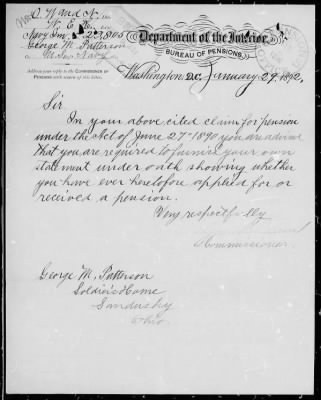 O. W. and N. Div.
N. E. Ex'r
Navy Inv. 23,805
George M. Patterson
U.S. Navy
Address your reply to the COMMISSIONER OF
PENSIONS
Department of the Interior,
BUREAU OF PENSIONS,
Washington, D.C., January 29, 1892.
Sir
In your above cited claim for pension
under the Act of June 27th 1890 you are advised
that you are required to furnish your own
statement under oath showing whether
you have ever heretofore applied for or
received a pension.
Very respectfully
Commissioner.
George M. Patterson
Soldiers Home
Sandusky
Ohio.